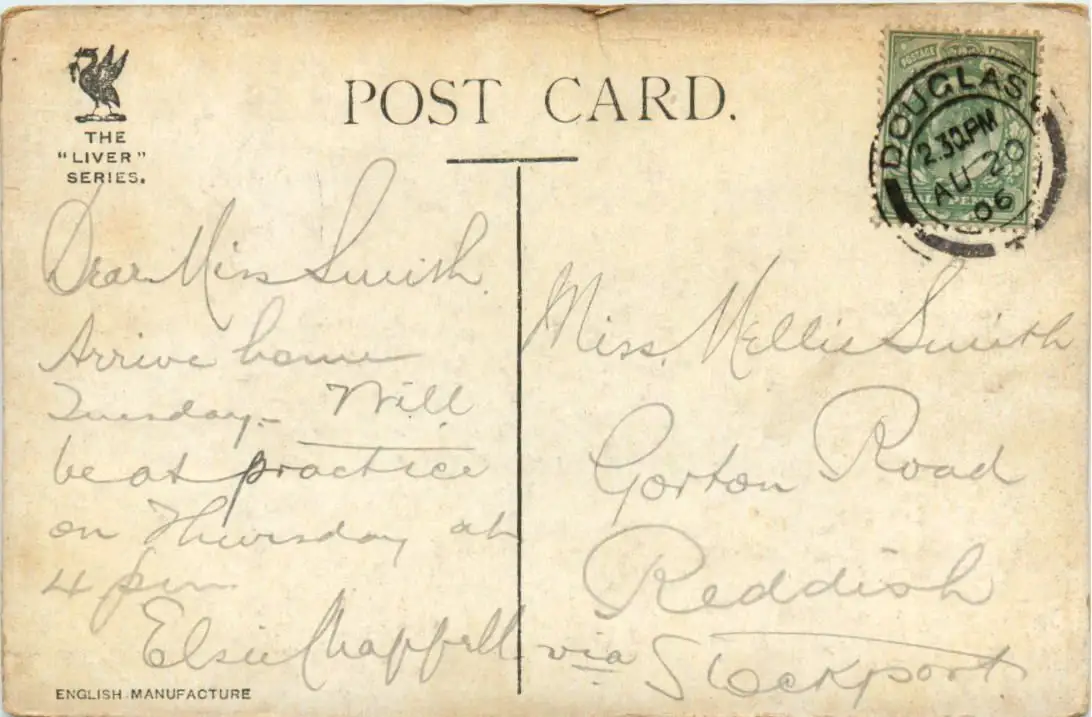 THE
"LIVER"
SERIES.
POST CARD.
POSTAGE
DOUGLAS
2.30PM
AU 20
06
Dear Miss Smith
Arrive home
Tuesday. Will
be at practice
on Thursday at
4 pm
Elsie Chappell
Miss. Nellie Smith
Gorton Road
Reddish
via Stockport
ENGLISH MANUFACTURE